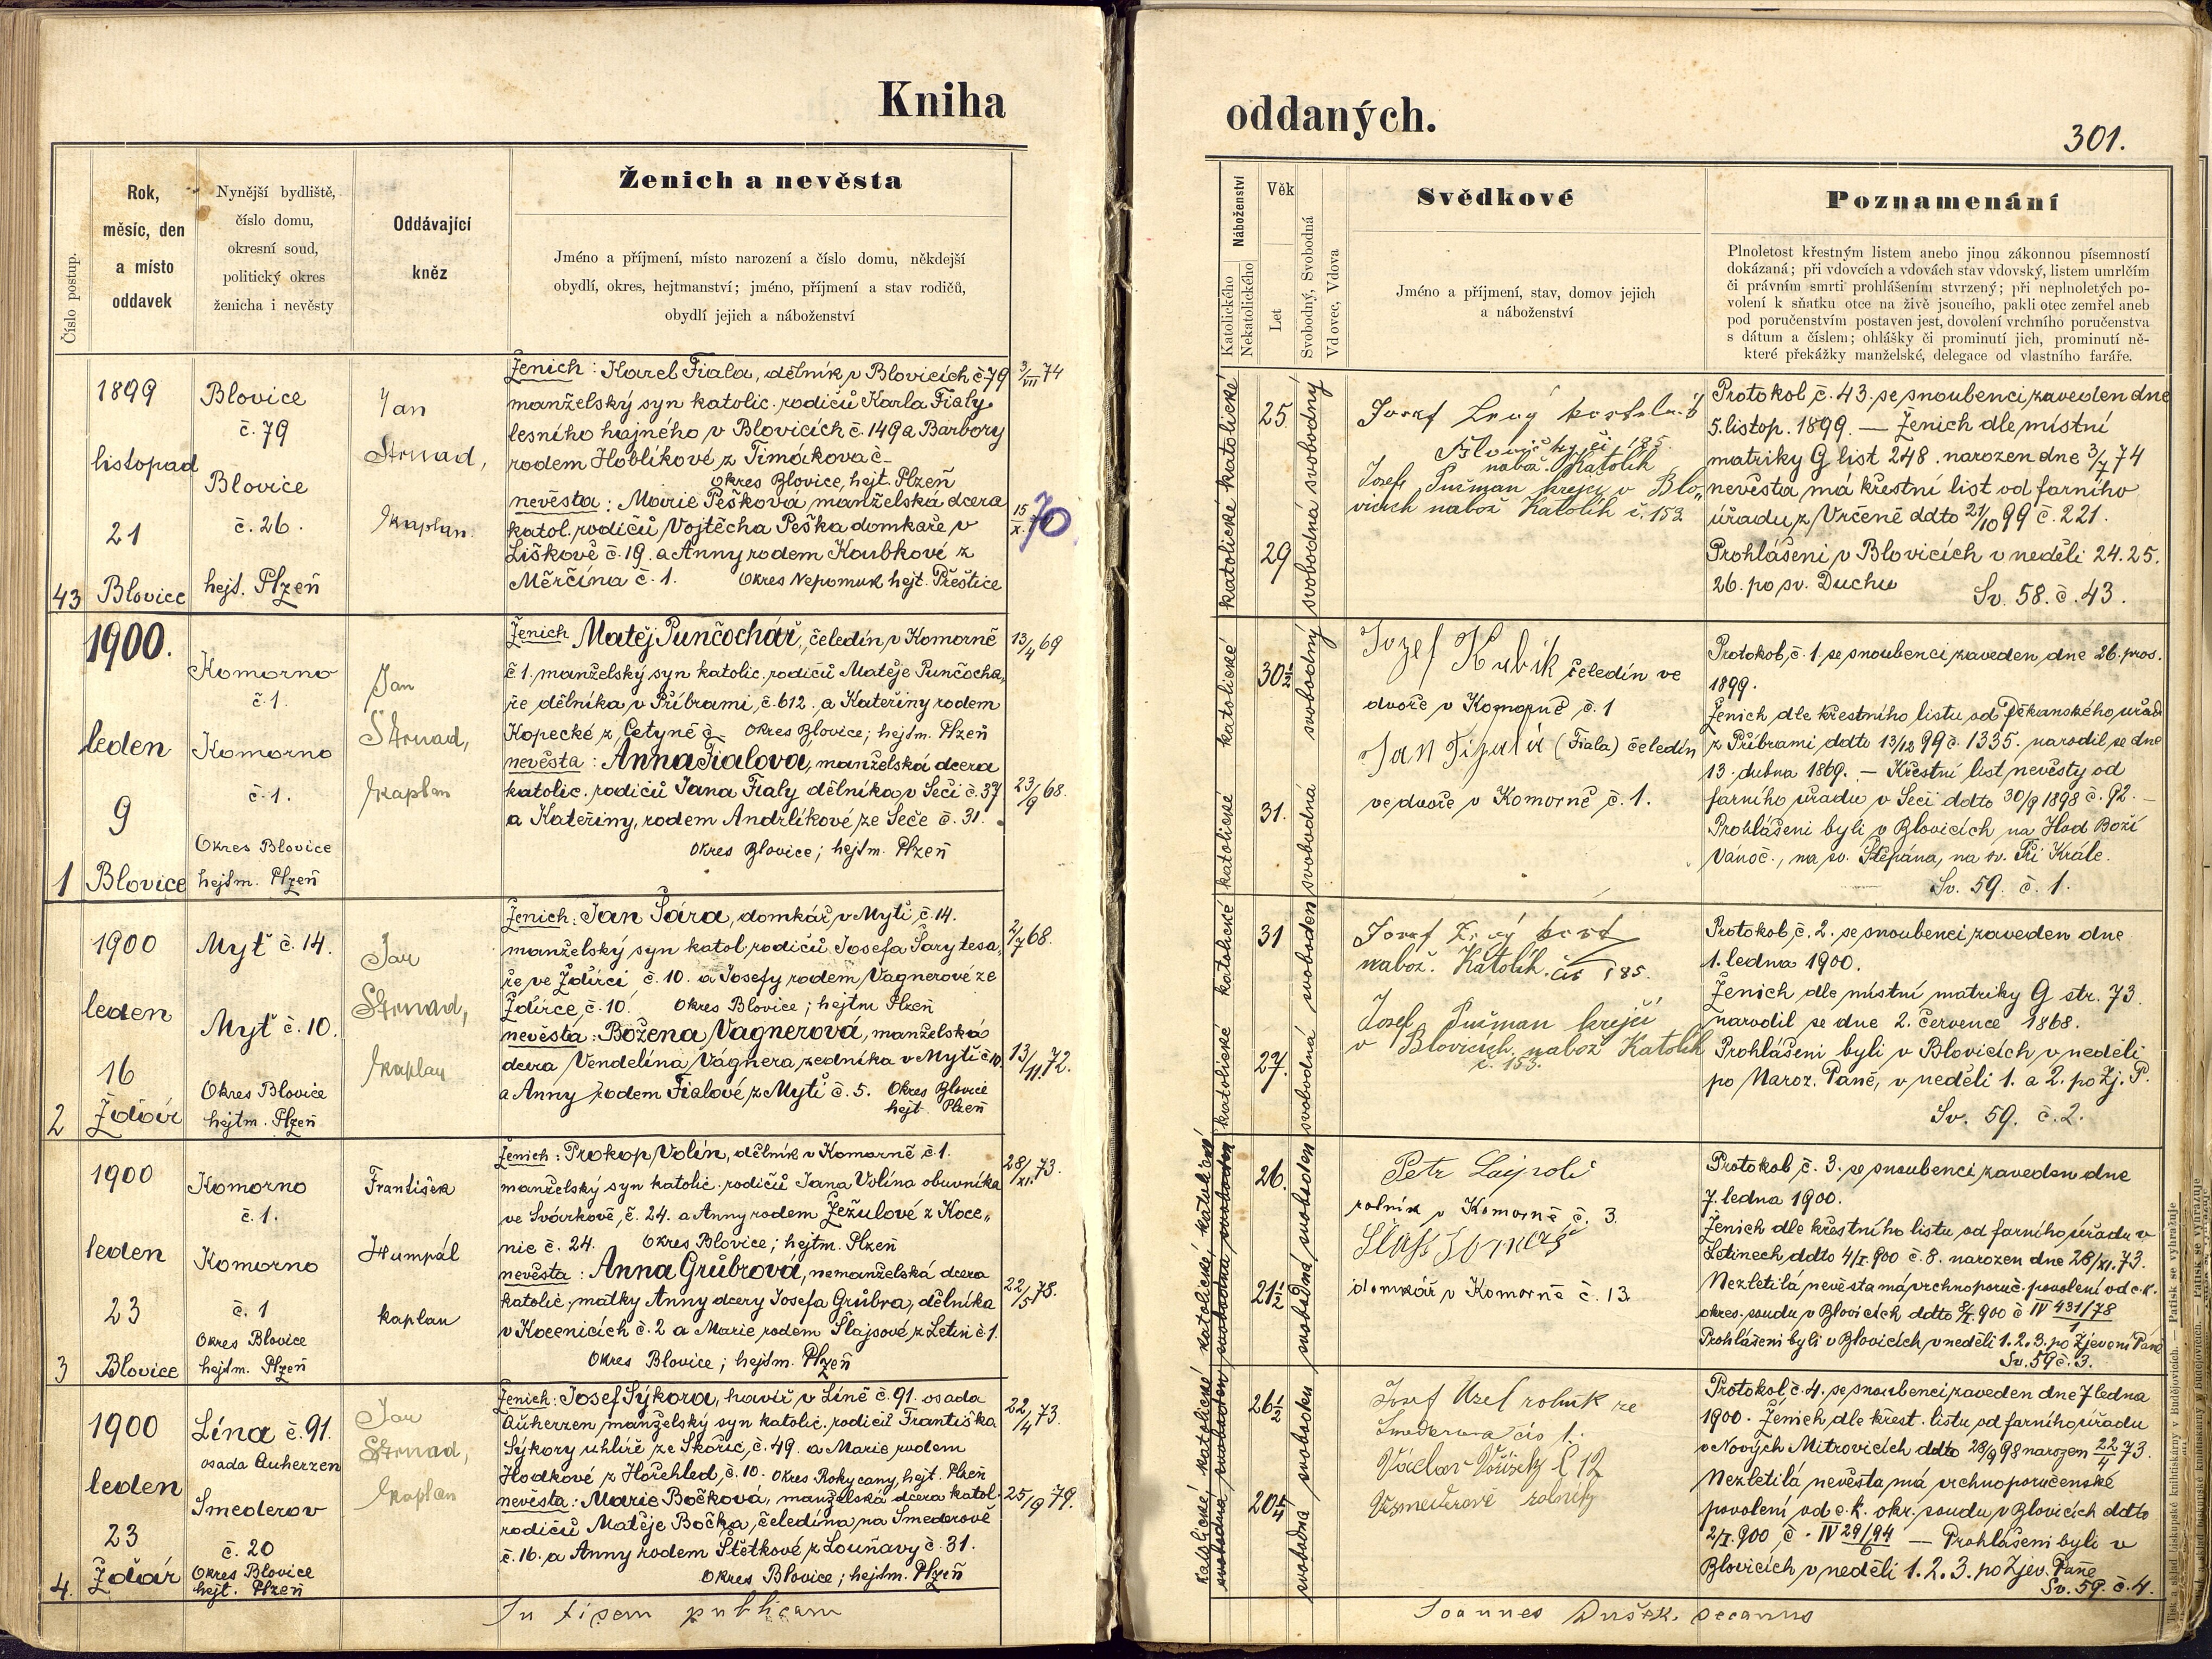 Kniha
Číslo postup.
Rok,
měsíc, den
a místo
oddavek
Nynější bydliště,
číslo domu,
okresní soud,
politický okres
ženicha i nevěsty
Oddávající
kněz
Ženich a nevěsta
Jméno a příjmení, místo narození a číslo domu, někdejší
obydlí, okres, hejtmanství; jméno, příjmení a stav rodičů,
obydlí jejich a náboženství
43
1899
listopad
21
Blovice
Blovice
č. 79
Blovice
č. 26.
hejt. Plzeň
Jan
Strnad,
kaplan.
Ženich: Karel Fiala, dělník v Blovicích č. 79
manželský syn katolic. rodičů Karla Fialy
lesního hajného v Blovicích č. 149 a Barbory
rodem Hoblíkové z Timákova č-
Okres Blovice, hejt. Plzeň
nevěsta: Marie Pešková, manželská dcera
katol. rodičů Vojtěcha Peška domkaře v
Liškově č. 19. a Anny rodem Koubkové z
Měrčína č. 1. Okres Nepomuk hejt. Přeštice
3/VII 74
15/X. 70
1
1900.
leden
9
Blovice
Komorno
č. 1.
Komorno
č. 1.
Okres Blovice
hejtm. Plzeň
Jan
Strnad,
kaplan
Ženich Matěj Punčochář, čeledín v Komorně
č 1. manželský syn katolic. rodičů Matěje Punčocha„
ře dělníka v Příbrami, č. 612. a Kateřiny rodem
Kopecké z Cetyně č. Okres Blovice; hejtm. Plzeň
nevěsta: Anna Fialova, manželská dcera
katolic. rodičů Jana Fialy dělníka v Seči č. 37
a Kateřiny, rodem Andrlíkové ze Seče č. 31.
Okres Blovice; hejtm. Plzeň
13/4 69
23/9 68.
2
1900
leden
16
Ždár
Myť č. 14.
Myť č. 10.
Okres Blovice
hejtm. Plzeň
Jan
Strnad,
kaplan
Ženich: Jan Šára, domkář v Mytí, č. 14.
manželský syn katol. rodičů Josefa Šáry tesa„
ře ve Ždírci č. 10. a Josefy rodem Vagnerové ze
Ždírce, č. 10. Okres Blovice; hejtm Plzeň
nevěsta: Božena Vagnerová, manželská
dcera Vendelína Vágnera, zedníka v Mytí č. 10.
a Anny rodem Fialové z Mytí č. 5. Okres Blovice
hejt. Plzeň
2/7 68.
13/11. 72.
3
1900
leden
23
Blovice
Komorno
č. 1.
Komorno
č. 1
Okres Blovice
hejtm. Plzeň
František
Humpál
kaplan
Ženich: Prokop Volín, dělník v Komorně č. 1.
manželský syn katolic. rodičů Jana Volína obuvníka
ve Svárkově, č. 24. a Anny rodem Žežulové z Koce„
nic č. 24. Okres Blovice; hejtm. Plzeň
nevěsta: Anna Grübrová, nemanželská dcera
katolic. matky Anny dcery Josefa Grübra, dělníka
v Kocenicích č. 2 a Marie rodem Šlajsové z Letin č. 1.
Okres Blovice; hejtm. Plzeň
28/XI. 73.
22/5 78.
4.
1900
leden
23
Ždár
Lína č. 91.
osada Auherzen
Smederov
č. 20
Okres Blovice
hejt. Plzeň
Jan
Strnad,
kaplan
Ženich: Josef Sýkora, havíř v Líně č. 91. osada
Auherzen, manželský syn katolic. rodičů Františka
Sýkory uhlíře ze Skořic, č. 49. a Marie rodem
Hodkové z Hořehled, č. 10. Okres Rokycany, hejt. Plzeň
nevěsta: Marie Bočková, manželská dcera katol.
rodičů Matěje Bočka, čeledína na Smederově
č. 16. a Anny rodem Štětkové z Louňavy č. 31.
Okres Blovice; hejtm. Plzeň
22/4 73.
25/9 79.
In fidem publicam
oddaných.
301.
Náboženství
Katolického
Nekatolického
Věk
Let
Svobodný, Svobodná
Vdovec, Vdova
Svědkové
Jméno a příjmení, stav, domov jejich
a náboženství
Poznamenání
Plnoletost křestným listem anebo jinou zákonnou písemností
dokázaná; při vdovcích a vdovách stav vdovský, listem umrlčím
či právním smrti prohlášením stvrzený; při neplnoletých po-
volení k sňatku otce na živě jsoucího, pakli otec zemřel aneb
pod poručenstvím postaven jest, dovolení vrchního poručenstva
s dátum a číslem; ohlášky či prominutí jich, prominutí ně-
které překážky manželské, delegace od vlastního faráře.
katolické katolické
25.
29
svobodná svobodný
Josef
nabož. Katolík
Josef Pušman krejcí v Blo„
vicích nabož Katolík č. 153
Protokol č. 43. se snoubenci zaveden dne
5. listop. 1899. — Ženich dle místní
matriky G list 248. narozen dne 3/7 74
nevěsta má křestní list od farního
úřadu z Vrčeně ddto 21/10 99 č. 221.
Prohlášeni v Blovicích v neděli 24. 25.
26. po sv. Duchu
Sv. 58. č. 43.
katolické katolické
30½
31.
svobodná svobodný
Jozef Kubík čeledín ve
dvoře v Komorně č. 1
Jan (Fiala) čeledín
ve dvoře v Komorně č. 1.
Protokol, č. 1, se snoubenci zaveden dne 26. pros.
1899.
Ženich dle křestního listu od Děkanského úřadu
z Příbrami ddto 13/12 99 č. 1335. narodil se dne
13. dubna 1869. — Křestní list nevěsty od
farního úřadu v Seči ddto 30/9 1898 č. 92. —
Prohlášeni byli v Blovicích na Hod Boží
vánoč., na sv. Štěpána, na sv. Tří Krále.
Sv. 59. č. 1.
katolické katolické
31
27.
svobodná svoboden
Josef
nabož. Katolík. čis 185.
Josef Pušman krejcí
v Blovicích nabož Katolík
č. 153.
Protokol, č. 2. se snoubenci zaveden dne
1. ledna 1900.
Ženich dle místní matriky G str. 73.
narodil se dne 2. července 1868.
Prohlášeni byli v Blovicích v neděli
po Naroz. Páně, v neděli 1. a 2. po Zj. P.
Sv. 59. č. 2.
katolické katolické
26.
21½
svobodná svoboden
Petr
rolník v Komorně č. 3
domkář v Komorně č. 13
Protokol č. 3. se snoubenci zaveden dne
7. ledna 1900.
Ženich dle křestního listu od farního úřadu v
Letinech ddto 4/I. 900 č. 8. narozen dne 28/XI. 73.
Nezletilá nevěsta má vrchnoporuč. povolení od c. k.
okres. soudu v Blovicích ddto
Prohlášeni byli v Blovicích v neděli 1. 2. 3. po Zjevení Páně
Sv. 59 č. 3.
katolické katolické
26½
20¼
svobodná svoboden
Josef rolník ze
Smederova čís 1.
Václav č 12
Vsmederově rolník
Protokol, č. 4. se snoubenci zaveden dne 7 ledna
1900. Ženich dle křest. listu od farního úřadu
v Nových Mitrovicích ddto 28/9 98 narozen 22/4 73.
Nezletilá nevěsta má vrchnoporučenské
povolení od c. k. okr. soudu v Blovicích ddto
2/I. 900, č. IV 29/94 — Prohlášeni byli v
6
Blovicích v neděli 1. 2. 3. po Zjev. Páně
Sv. 59. č. 4.
Joannes Dušek. decanus